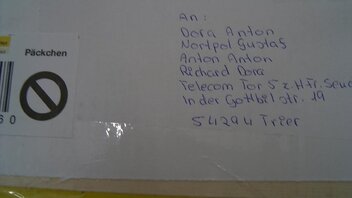 Päckchen
60
An:
Dora Anton
Nordpol Gustaf
Anton Anton
Richard Dora
Telecom Tor 5 z.H Fr.
In der Gottbill str. 19
54294 Trier